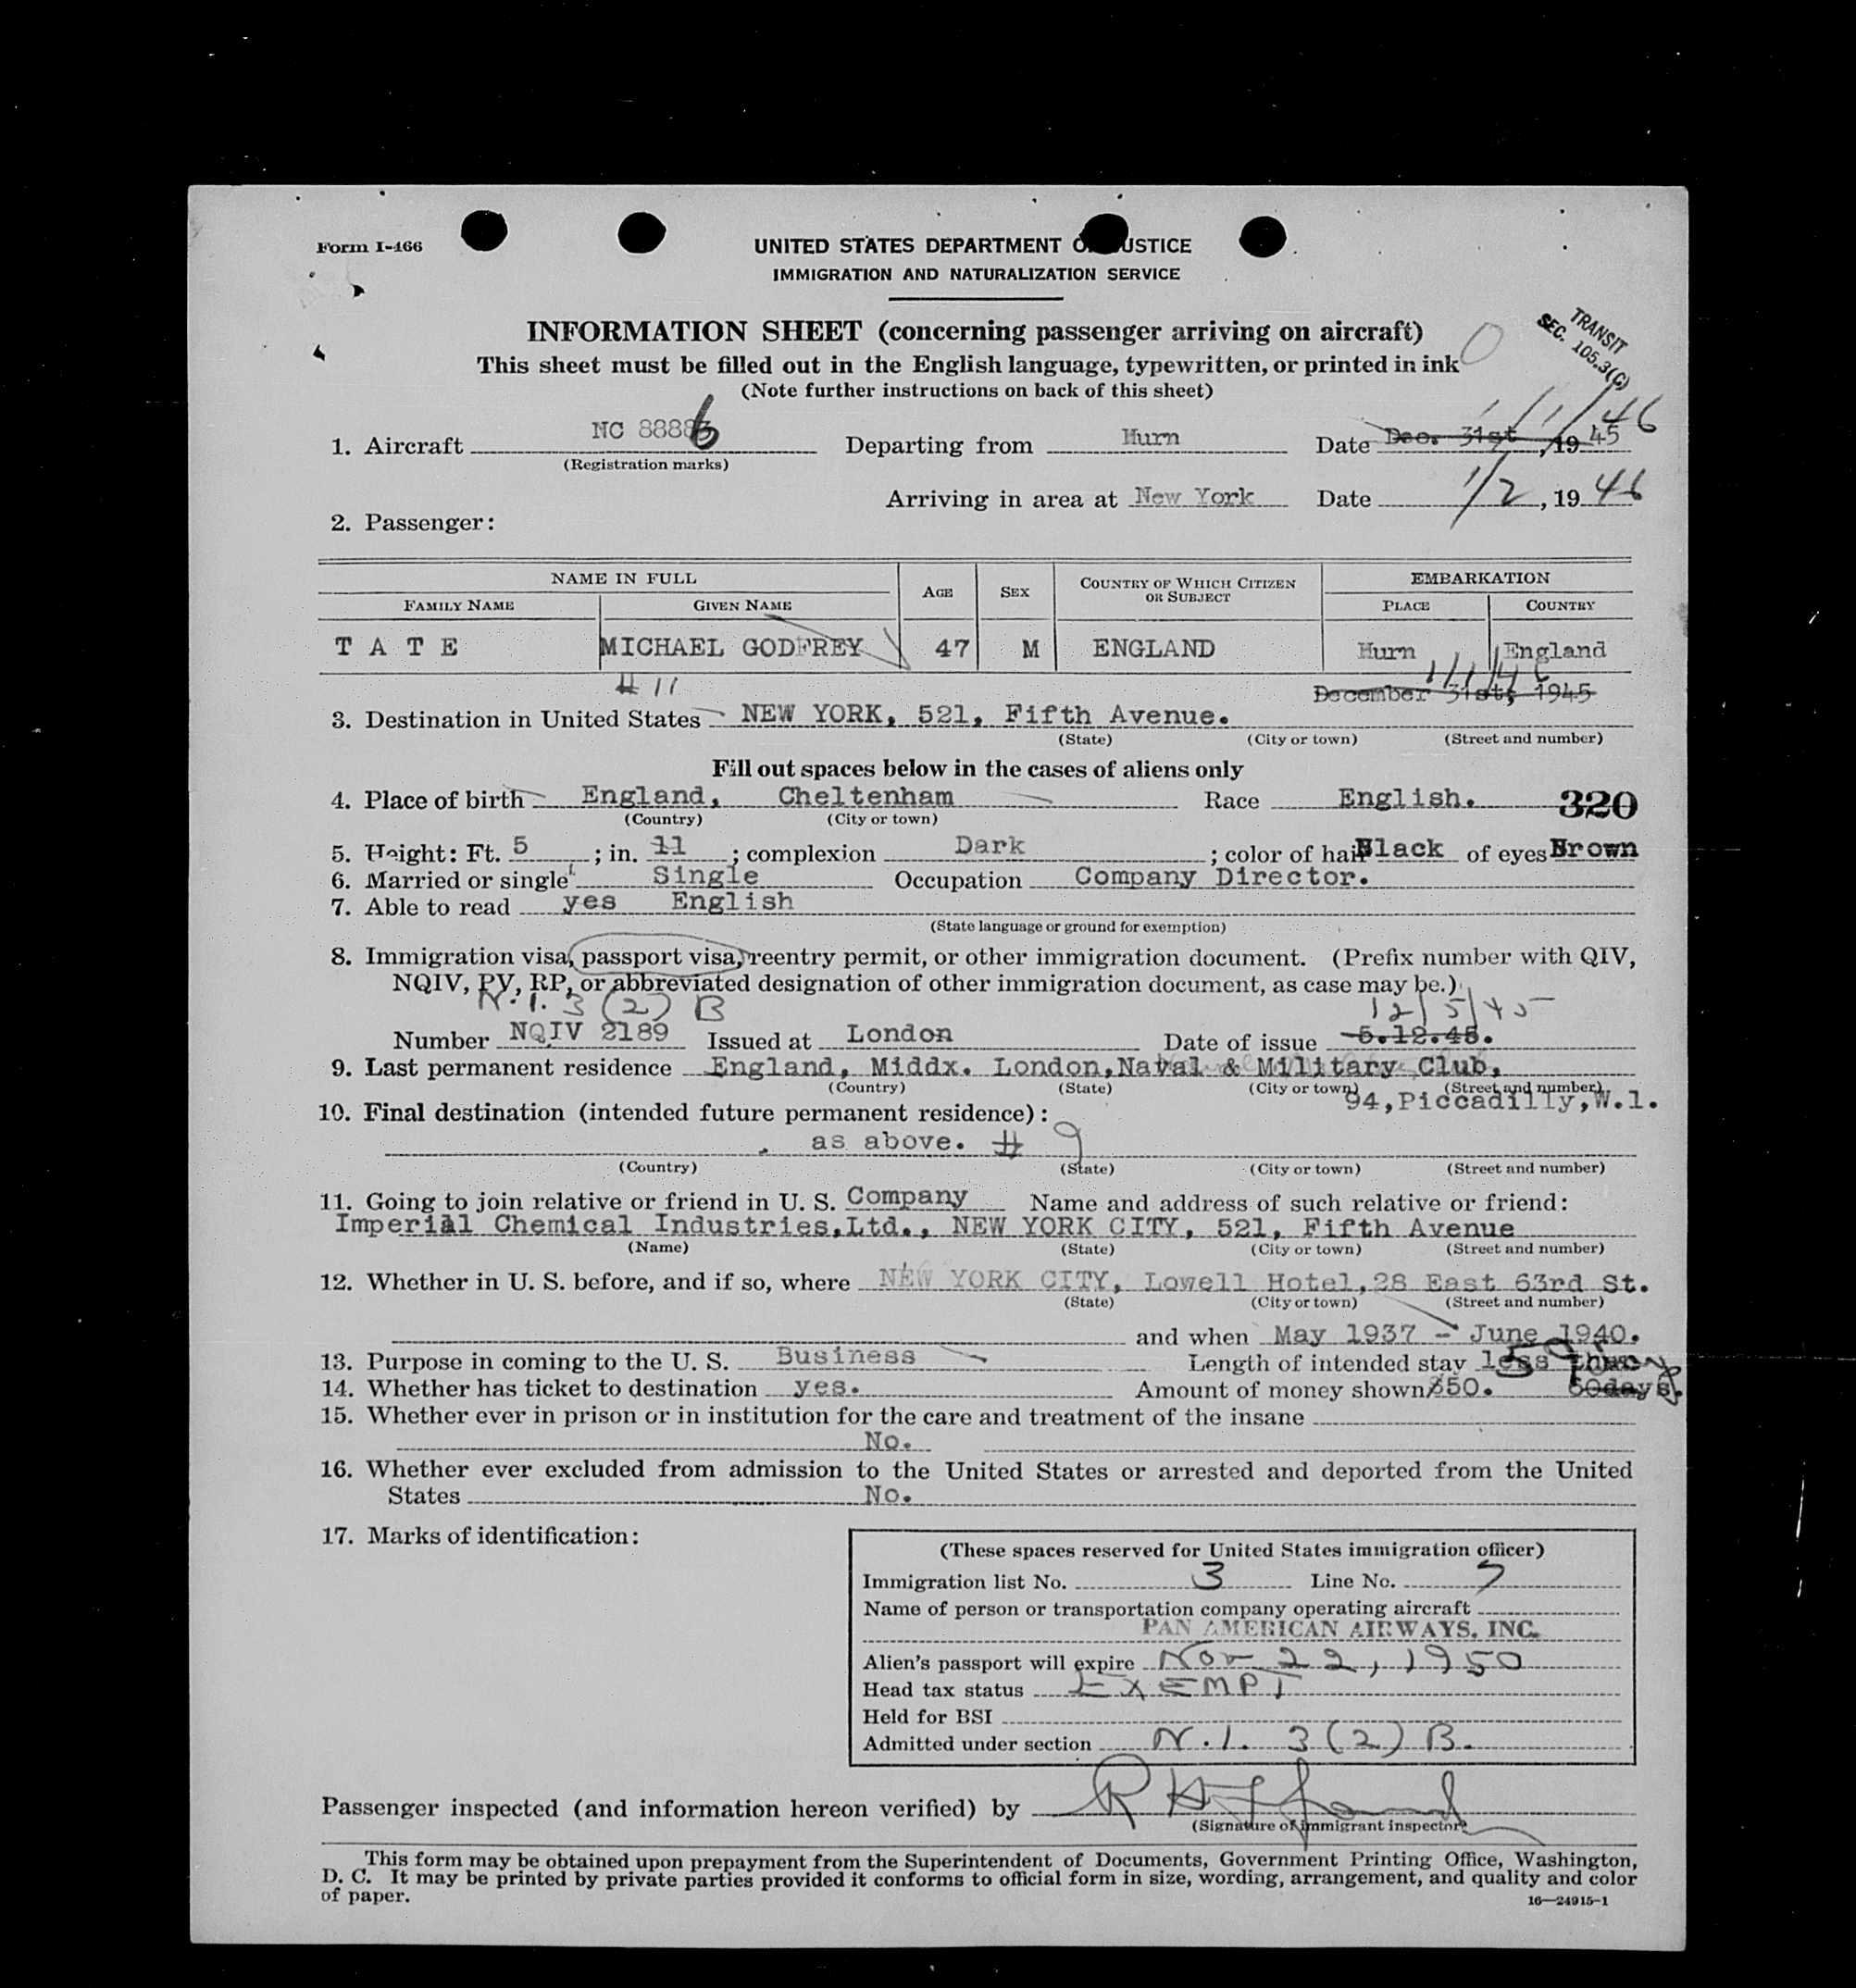 Form I-466
UNITED STATES DEPARTMENT O USTICE
IMMIGRATION AND NATURALIZATION SERVICE
INFORMATION SHEET (concerning passenger arriving on aircraft)
TRANSIT
SEC. 105.3(C)
This sheet must be filled out in the English language, typewritten, or printed in ink
(Note further instructions on back of this sheet)
1/1/46
1. Aircraft NC 88886 Departing from Hurn Date Dec. 31st, 1945
(Registration marks)
Arriving in area at New York Date 1/2, 1946
2. Passenger:
NAME IN FULL AGE SEX COUNTRY OF WHICH CITIZEN OR SUBJECT EMBARKATION
FAMILY NAME GIVEN NAME PLACE COUNTRY
T A T E MICHAEL GODFREY 47 M ENGLAND Hurn England
# 11 1/1/46
December 31st, 1945
3. Destination in United States NEW YORK, 521, Fifth Avenue.
(State) (City or town) (Street and number)
Fill out spaces below in the cases of aliens only
4. Place of birth England, Cheltenham Race English. 320
(Country) (City or town)
5. Height: Ft. 5 ; in. 11 ; complexion Dark ; color of hair Black of eyes Brown
6. Married or single Single Occupation Company Director.
7. Able to read yes English
(State language or ground for exemption)
8. Immigration visa, passport visa, reentry permit, or other immigration document. (Prefix number with QIV,
NQIV, PV, RP, or abbreviated designation of other immigration document, as case may be.)
N.I. 3 (2) B 12/5/45
Number NQIV 2189 Issued at London Date of issue 5.12.45.
9. Last permanent residence England, Middx. London, Naval & Military Club,
(Country) (State) (City or town) (Street and number)
94, Piccadilly, W.1.
10. Final destination (intended future permanent residence):
as above. # 9
(Country) (State) (City or town) (Street and number)
11. Going to join relative or friend in U. S. Company Name and address of such relative or friend:
Imperial Chemical Industries, Ltd., NEW YORK CITY, 521, Fifth Avenue
(Name) (State) (City or town) (Street and number)
12. Whether in U. S. before, and if so, where NEW YORK CITY, Lowell Hotel, 28 East 63rd St.
(State) (City or town) (Street and number)
and when May 1937 - June 1940.
13. Purpose in coming to the U. S. Business Length of intended stay less than
14. Whether has ticket to destination yes. Amount of money shown $50. 60 days.
15. Whether ever in prison or in institution for the care and treatment of the insane
No.
16. Whether ever excluded from admission to the United States or arrested and deported from the United
States No.
17. Marks of identification:
(These spaces reserved for United States immigration officer)
Immigration list No. 3 Line No. 7
Name of person or transportation company operating aircraft
PAN AMERICAN AIRWAYS, INC.
Alien's passport will expire Nov 22, 1950
Head tax status EXEMPT
Held for BSI
Admitted under section N.I. 3(2) B.
Passenger inspected (and information hereon verified) by
(Signature of immigrant inspector)
This form may be obtained upon prepayment from the Superintendent of Documents, Government Printing Office, Washington,
D. C. It may be printed by private parties provided it conforms to official form in size, wording, arrangement, and quality and color
of paper.
16—24915-1